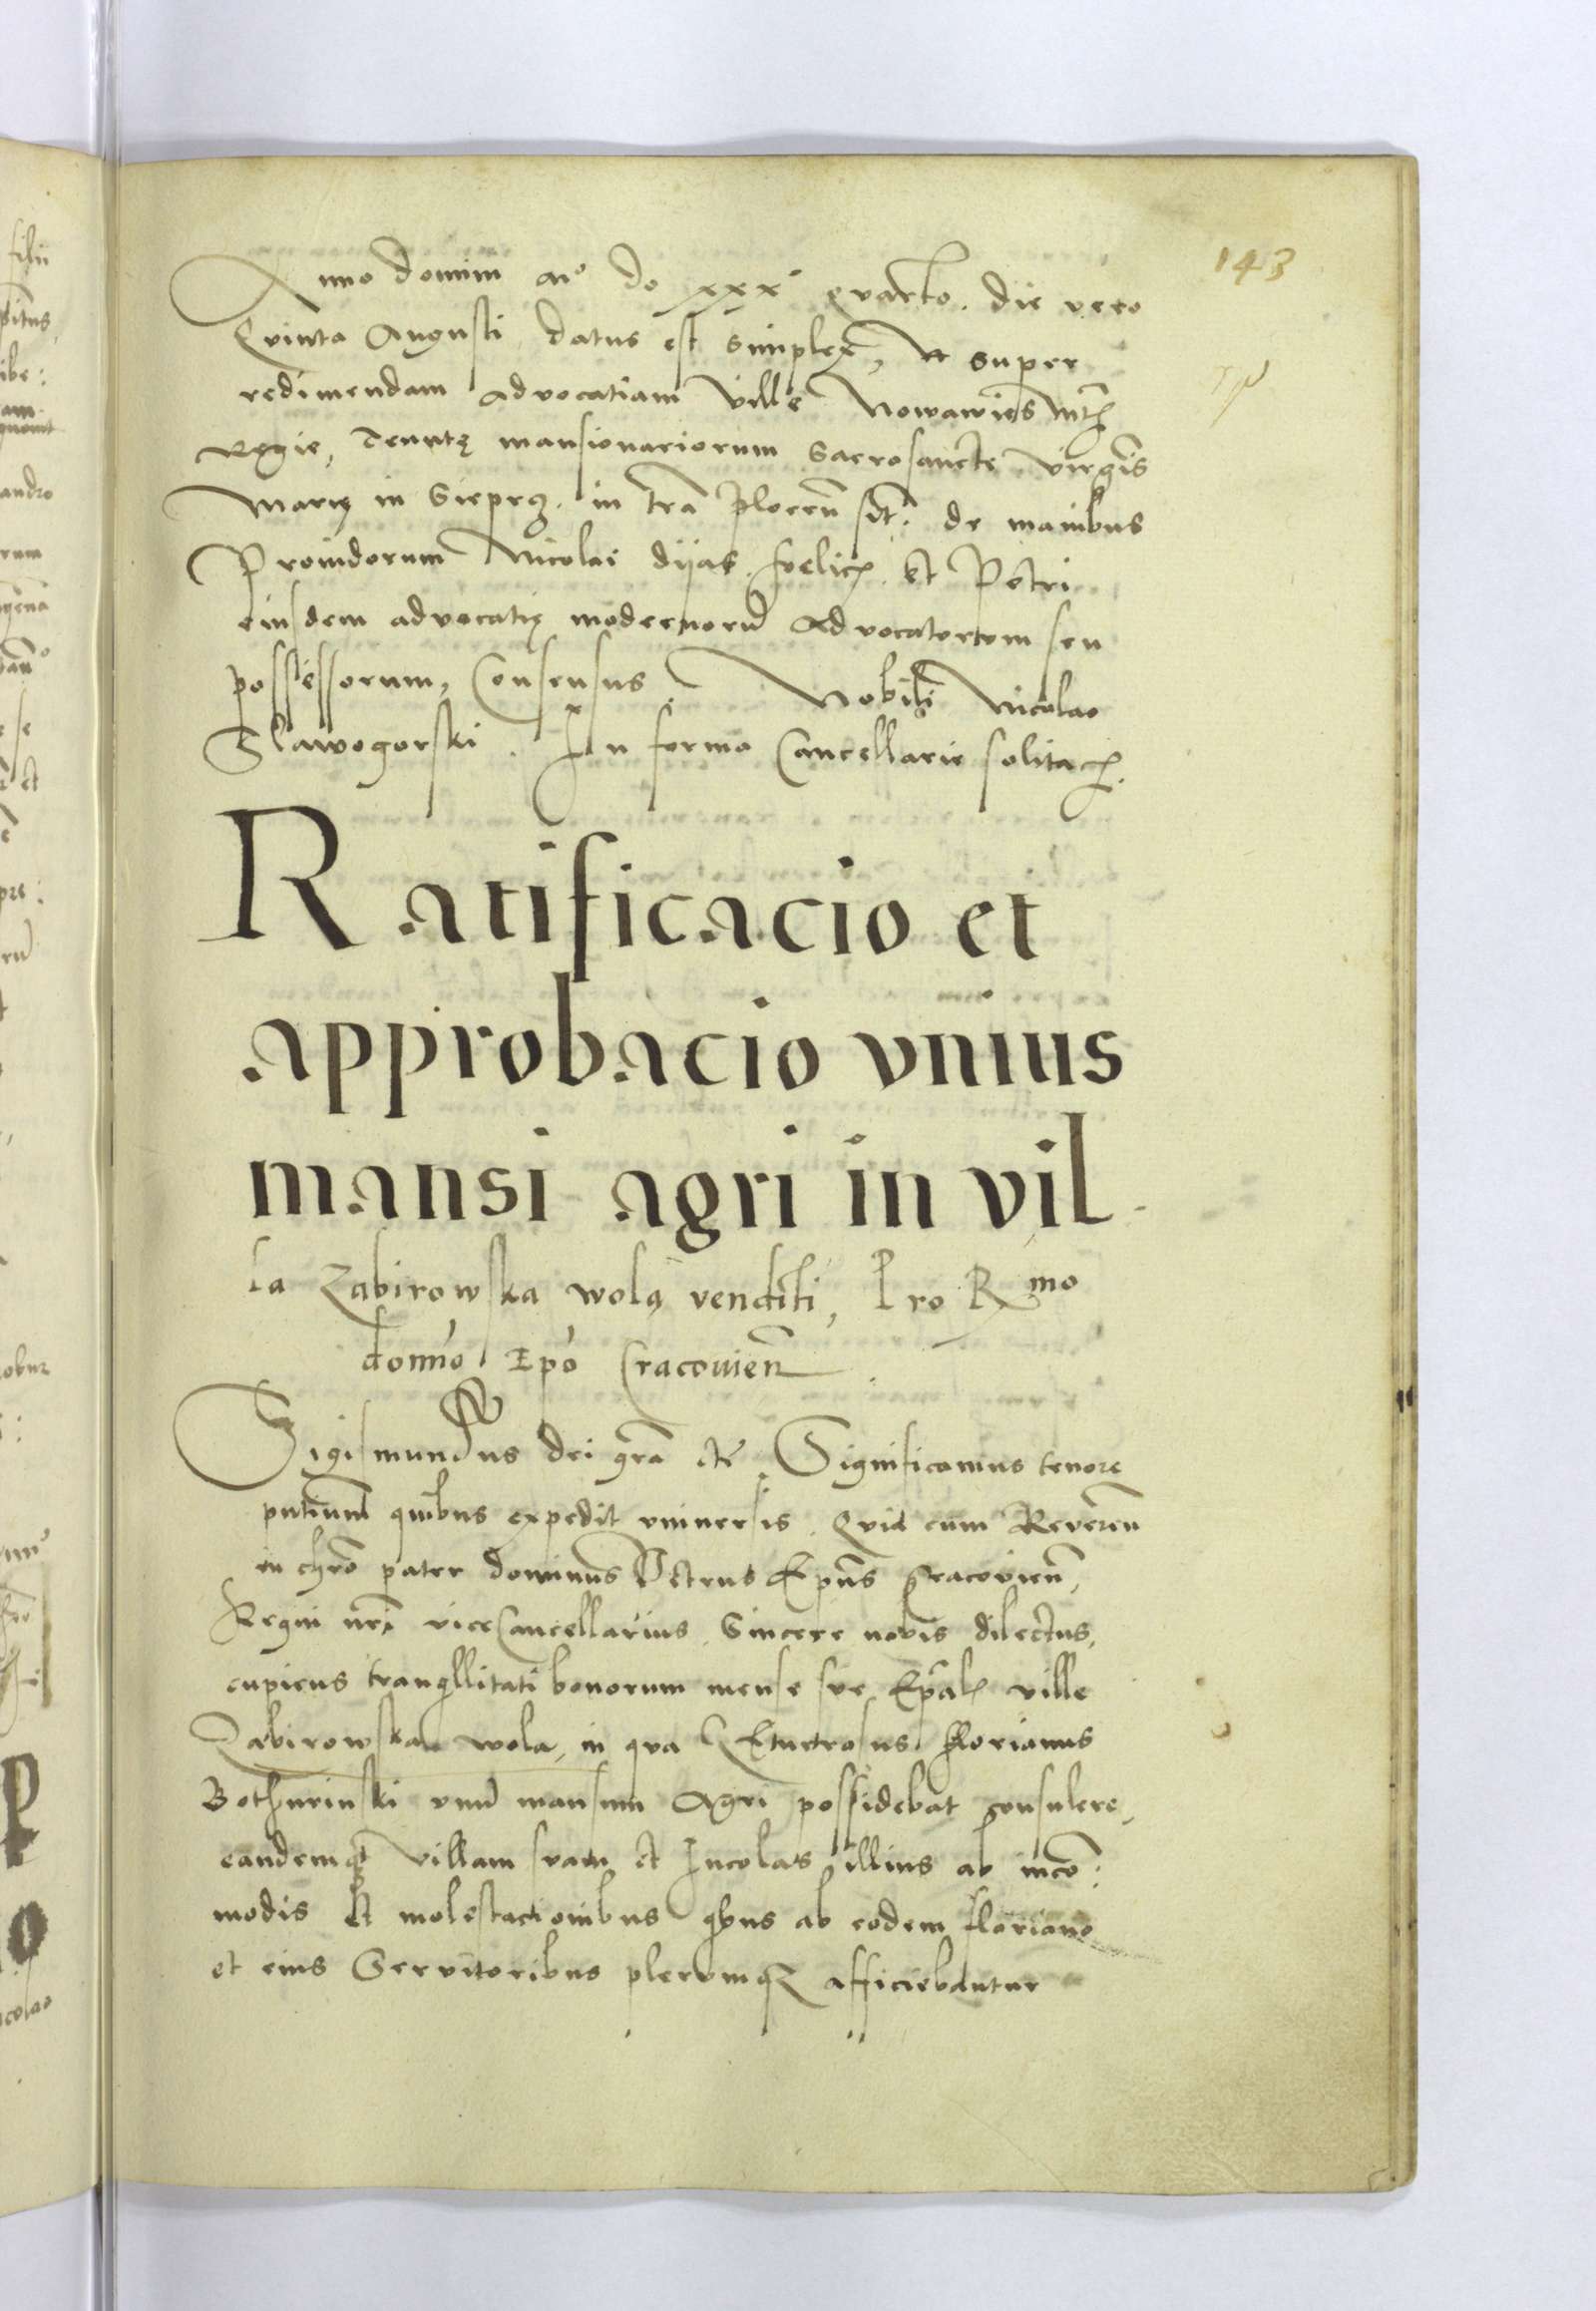 143
Anno domini mº do xxxº qvarto. die vero
Qvinta Augusti datus est simplex, vt super
redimendam advocatiam ville Nowawies
Regie, Tenutę mansionariorum sacrosancte virginis
Marię in Sieprcz. in tra plocen sit. de manibus
Providorum Nicolai dijas foelicis et Petri
eiusdem advocatię modernorum advocatorum seu
possessorum, Consensus. Nobili Nicolao
Slawogorski. In forma Cancellarie solita.
Ratificacio et
approbacio vnius
mansi agri in vil
la Zabirowska wolą venditi, Pro Rmo
domno Epo Cracouien.
Sigismundus dei gra etc. Significamus tenore
pntium quibus expedit vniversis. Qvia cum Reveren
in chro pater dominus Petrus Epus Cracovien,
Regni nri viceCancellarius. Sincere nobis dilectus,
cupiens tranqllitati bonorum mense sue Epalis ville
Zabirowska wola, in qva Florianus
Bothurinski vnum mansum Agri possidebat consulere,
eandemq villam svam et Incolas illius ab inco:
modis et molestacionibus qbus ab eodem floriano
et eius Servitoribus plerumqz afficiebantur